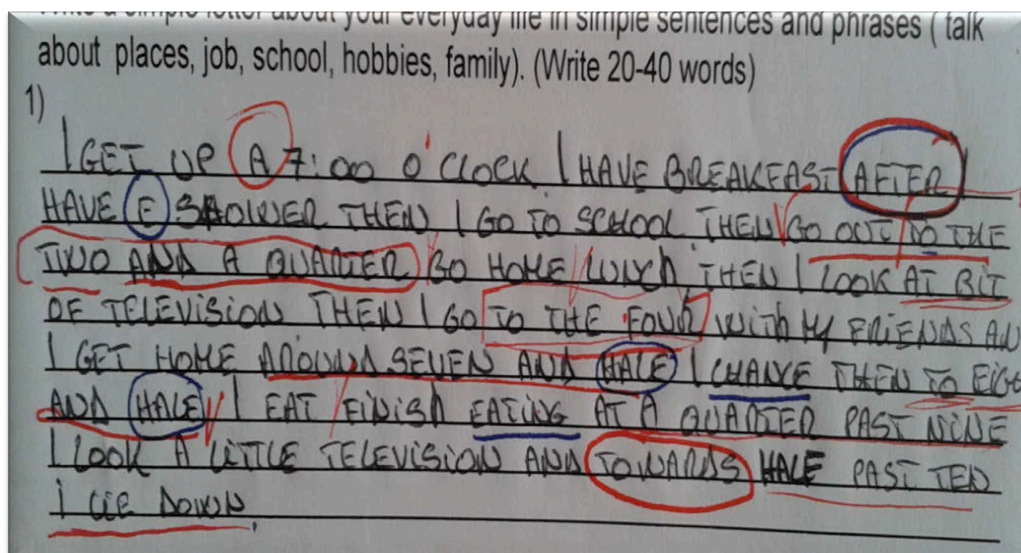 Write a simple letter about your everyday life in simple sentences and phrases ( talk
about places, job, school, hobbies, family). (Write 20-40 words)
1)
I GET UP A 7:00 O'CLOCK I HAVE BREAKFAST AFTER
HAVE E SHOWER THEN I GO TO SCHOOL THEN GO OUT TO THE
TWO AND A QUARTER GO HOME LUNCH THEN I LOOK AT BIT
OF TELEVISION THEN I GO TO THE FOUR WITH MY FRIENDS AN
I GET HOME AROUND SEVEN AND HALE I CHANCE THEN TO EIG
AND HALE I EAT FINISH EATING AT A QUARTER PAST NINE
I LOOK A LITTLE TELEVISION AND TOWARDS HALE PAST TEN
I LIE DOWN.